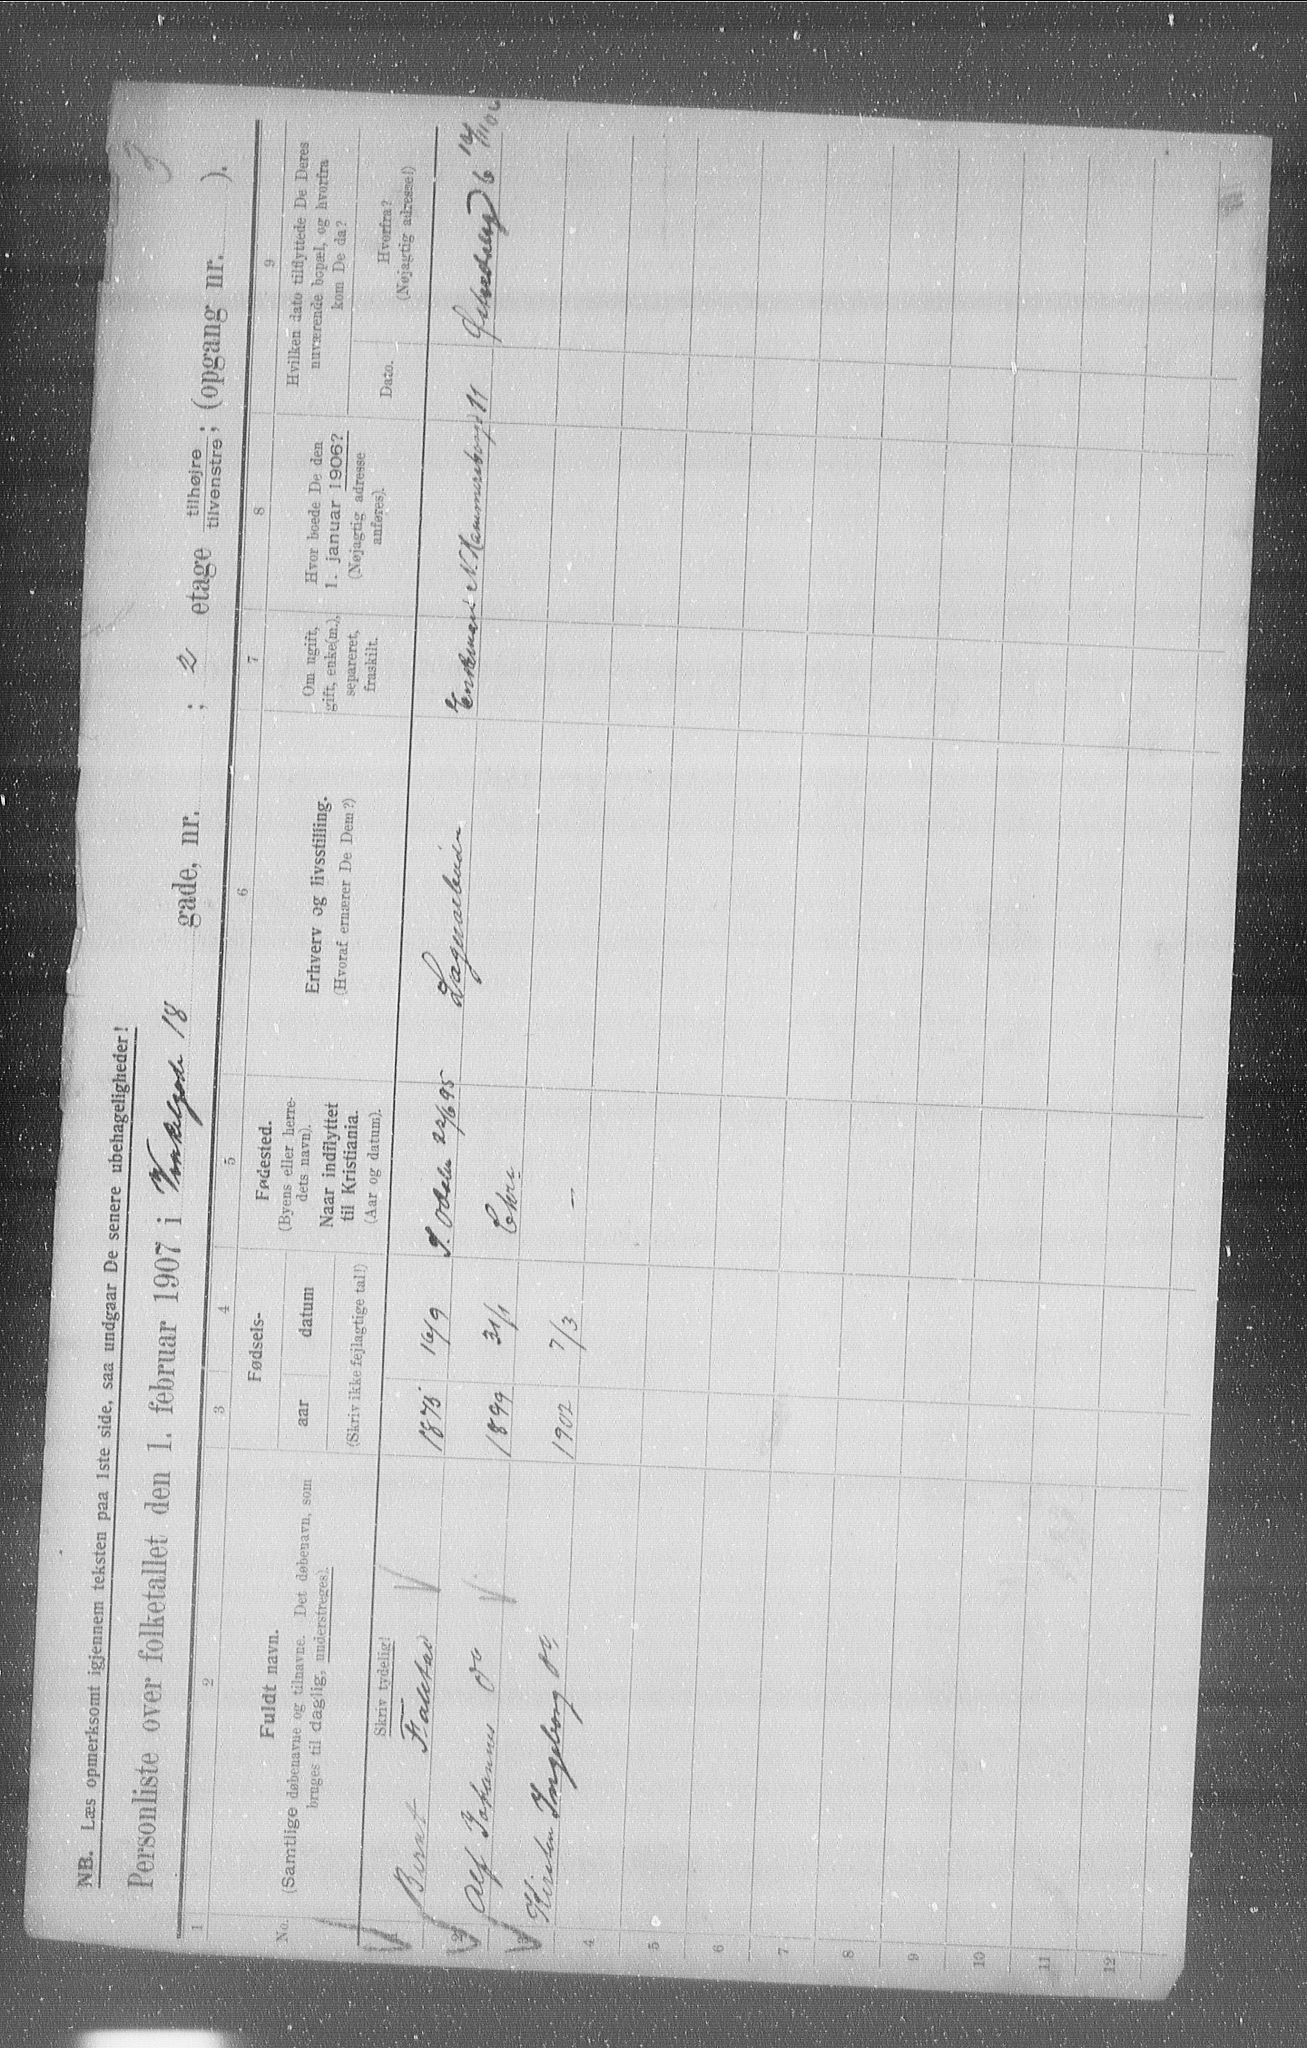 NB. Læs opmerksomt igjennem teksten paa 1ste side, saa undgaar De senere ubehageligheder!
Personliste over folketallet den 1. februar 1907 i Vinkelgade 18 gade, nr. ; 2 etage tilhøjre tilvenstre; (opgang nr. ).
1 2 3 4 5 6 7 8 9
No.
Fuldt navn.
(Samtlige døbenavne og tilnavne. Det døbenavn, som
bruges til daglig, understreges).
Skriv tydelig!
Fødsels-
aar datum
(Skriv ikke fejlagtige tal!)
Fødested.
(Byens eller herre-
dets navn).
Naar indflyttet
til Kristiania.
(Aar og datum).
Erhverv og livsstilling.
(Hvoraf ernærer De Dem?)
Om ugift,
gift, enke(m.),
separeret,
fraskilt.
Hvor boede De den
1. januar 1906?
(Nøjagtig adresse
anføres).
Hvilken dato tilflyttede De Deres
nuværende bopæl, og hvorfra
kom De da?
Dato.
Hvorfra?
(Nøjagtig adresse!)
1 Bernt 1875 16/9 S. Odalen 22/6 95 Lagerarbeider Enkemand N. Hammersborg 11
2 Alf Johannes do 1899 31/1 Chra
3 Kirsten Ingeborg do 1902 7/3 –
4
5
6
7
8
9
10
11
12